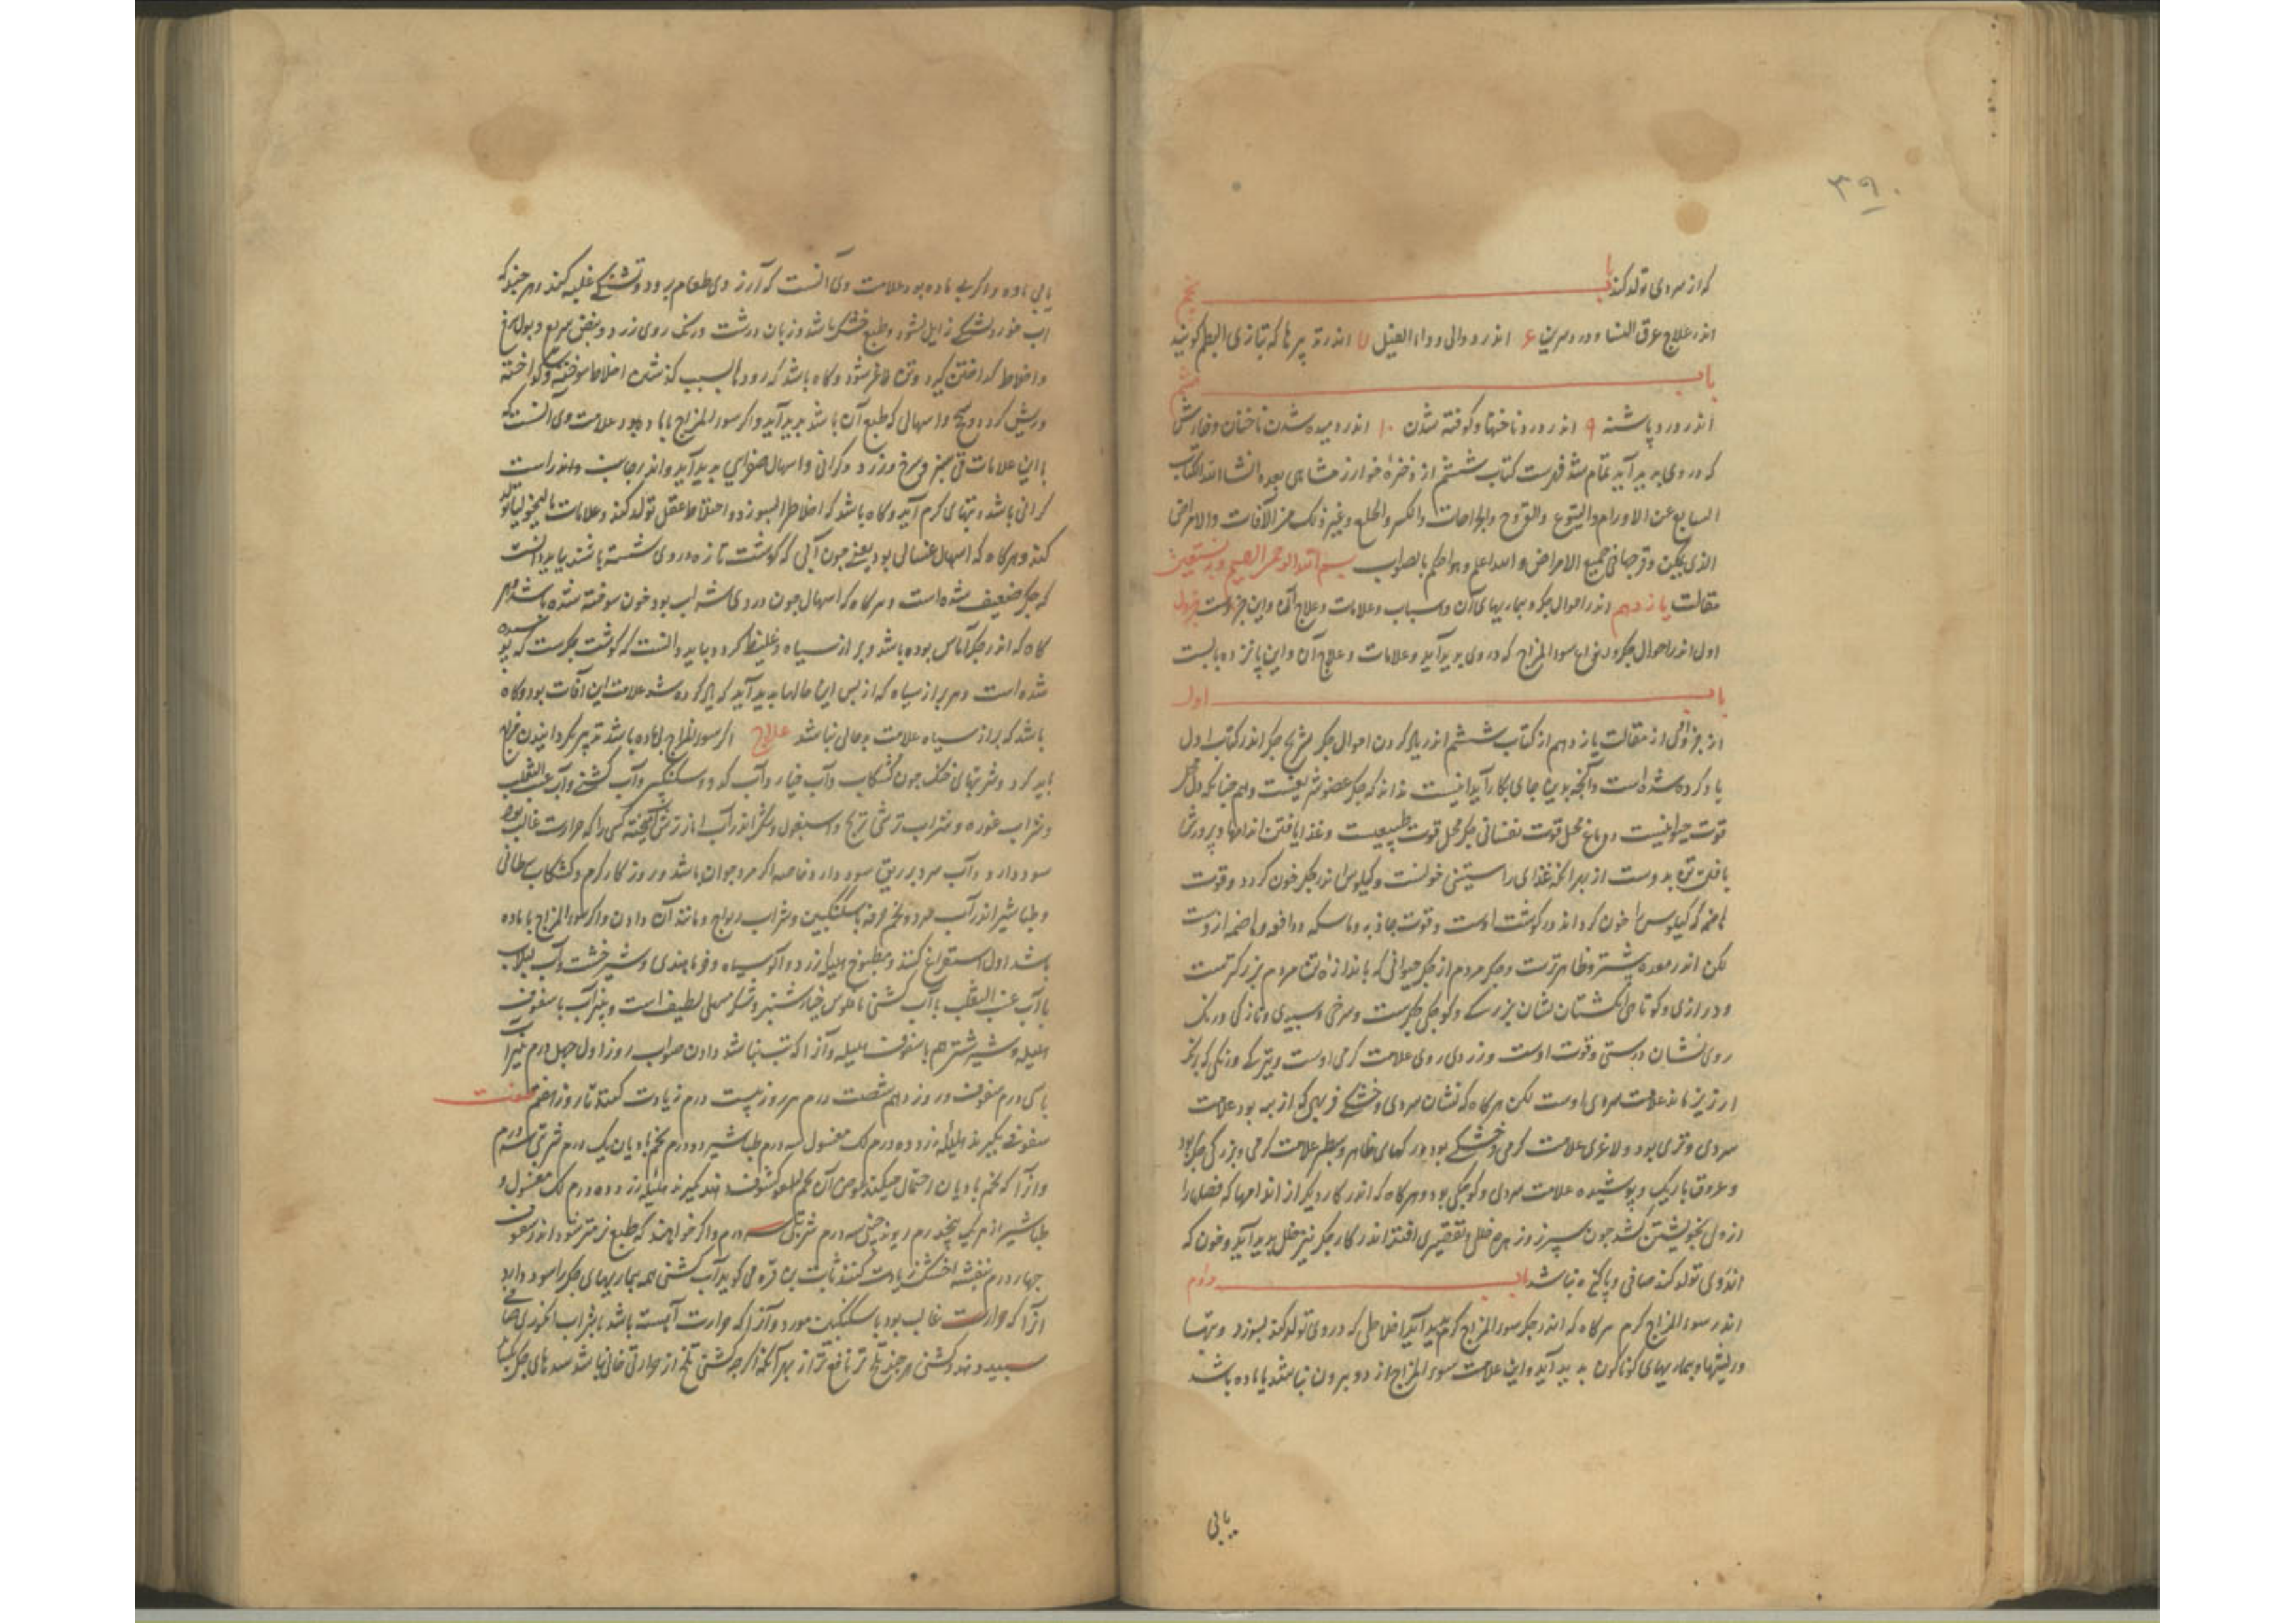 ۳۹۰
که از سردی تولد کند باب پنجم
اندر علاج عرق النسا و درد سرین ۶ اندر دوالی و داء الفیل ۷ اندر تدبیرها که بتازی البطم کویند
باب
اندر درد پاشنه ۹ اندر درد ناخنها و کوفته شدن ۱۰ اندر دمیده شدن ناخنان و خارش
که در وی پدید آید تمام شد فهرست کتاب ششم از ذخیرهٔ خوارزمشاهی بعده انشا الله الکتاب
السابع عن الاورام والبثور والقروح والجراحات والکسر والخلع وغیر ذلک من الآفات والامراض
الذی یمکن وقوعها فی جمیع الامراض والله اعلم وهو احکم بالصواب بسم الله الرحمن الرحیم وبه نستعین
مقالت یازدهم اندر احوال جکر و بیماریهای آن و اسباب و علامات و علاج آن و این جزوست جزو
اول اندر احوال جکر و انواع سوء المزاج که در وی پدید آید و علامات و علاج آن و این پانزده بابست
باب اول
از جزو اول از مقالت یازدهم از کتاب ششم اندر یاد کردن احوال جکر تشریح جکر اندر کتاب اول
یاد کرده شده است و آنچه بدین جای بکار آید اینست بدانکه جکر عضو شریفست و همچنانکه دل محل
قوت حیوانیست و دماغ محل قوت نفسانی جکر محل قوت طبیعیست و غذا یافتن اندامها و پرورش
یافتن تن بدوست از بهر آنکه غذای راستینی خونست و کیلوس اندر جکر خون کردد و قوت
هاضمه که کیلوس را خون کرداند در کوشت اوست و قوت جاذبه و ماسکه و دافعه و هاضمه از وست
لکن اندر معده بیشتر و ظاهرترست و جکر مردم از جکر حیوانی که باندازهٔ تن مردم بزرکترست
و درازی و کوتاهی انکشتان نشان بزرکی و کوچکی جکرست و سرخی و سپیدی و تازکی و رنک
روی نشان درستی و قوت اوست و زردی روی علامت کرمی اوست و تیرکی و رنکی که برنک
ارزیز ماند علامت سردی اوست لکن هرکاه که نشان سردی و خشکی فربهی که از پیه بود علامت
سردی و تری بود و لاغری علامت کرمی و خشکی بود و رکهای ظاهر و سطبر علامت کرمی و بزرکی جکر بود
و عروق باریک و پوشیده علامت سردی و کوچکی بود و هرکاه که اندر کار دیکر از اندامها که فضلها را
از وی بخویشتن کشد چون سپرز و زهره خللی و تقصیری افتد اندر کار جکر نیز خلل پدید آید و خون که
اندر وی تولد کند صافی و پاکیزه نباشد باب دوم
اندر سوء المزاج کرم هرکاه که اندر جکر سوء المزاج کرم پدید آید اخلاطی که در وی تولد کند بسوزد و تبها
و ریشها و بیماریهای کوناکون پدید آید و این علامت سوء المزاج از دو بیرون نباشد یا با ماده باشد
یا بی
یا بی ماده و اکر بی ماده بود علامت وی آنست که آرزوی طعام برود و تشنکی غلبه کند و هر چند که
آب خورد تشنکی زایل نشود و طبع خشک باشد و زبان درشت و رنک روی زرد و نبض سریع و بول سرخ
و اخلاط کداختن کیرد و تن لاغر شود و کاه باشد که رودها بسبب کذشتن اخلاط سوخته و کداخته
ریش کردد و سحج و اسهالی که طبع آن باشد پدید آید و اکر سوء المزاج با ماده بود علامت وی آنست که
با این علامات قی سبز و سرخ و زرد و کرانی و اسهال صفرایی پدید آید و اندر جانب راست
کرانی باشد و تبهای کرم آید و کاه باشد که اخلاط را بسوزد و اختلاط عقل تولد کند و علامات مالیخولیا تولد
کند و هرکاه که اسهال غسالی بود یعنی چون آبی که کوشت تازه در وی شسته باشند بباید دانست
که جکر ضعیف شده است و هرکاه که اسهال چون دردی شراب بود خون سوخته شده باشد و هر
کاه که اندر جکر آماس بوده باشد و براز سیاه و غلیظ کردد بباید دانست که کوشت جکرست که پوسیده
شده است و هر براز سیاه که از پس این حالها پدید آید که یاد کرده شد علامت این آفات بود و کاه
باشد که براز سیاه علامت بدحالی نباشد علاج اکر سوء المزاج بی ماده باشد تدبیر کردانیدن مزاج
باید کرد و شربتهای خنک چون کشکاب و آب خیار و آب کدو و سکنکبین و آب کشنی و آب عنب الثعلب
و شراب غوره و شراب ترشی ترنج و اسبغول و شکر اندر آب انار ترش آمیخته کسی را که حرارت غالب بود
سود دارد و آب سرد بر ریق سود دارد خاصه اکر مرد جوان باشد و روز کار کرم و کشکاب سرطانی
و طباشیر اندر آب سرد و تخم خرفه با سکنکبین و شراب ریواج و مانند آن دادن و اکر سوء المزاج با ماده
باشد اول استفراغ کنند و مطبوخ هلیله زرد و آلو سیاه و خرما هندی و شیرخشت و آب لبلاب
با آب عنب الثعلب با آب کشنی با فلوس خیار شنبر و شکر مسهلی لطیف است و پنیرآب با سفوف
هلیله و شیر شتر هم با سفوف هلیله و آنرا که تب نباشد دادن صواب روز اول چهل درم شیر
با سی درم سفوف و روز دهم شصت درم هر روز بیست درم زیادت کنند تا روز هفتم صفت
سفوف بکیرند هلیله زرد ده درم لک مغسول سه درم طباشیر دو درم تخم بادیان یک درم شربتی سه درم
و آنرا که تخم بادیان احتمال نکند عوض آن تخم کشوث دهند بکیرند هلیله زرد ده درم لک مغسول و
طباشیر از هر یک پنج درم ریوند چینی سه درم شربتی سه درم و اکر خواهند که طبع نرمتر شود اندر سفوف
چهار درم بنفشه خشک زیادت کنند ثابت بن قره می کوید آب کشنی همه بیماریهای جکر را سود دارد
آنرا که حرارت غالب بود با سکنکبین خورد و آنرا که حرارت آهسته باشد با شراب انکوری صافی
سپید و هند کشنی هر چند تلخ تر نافع تر از بهر آنکه اکر چه کشنی تلخ از حرارتی خالی نباشد سده های جکر بکشاید